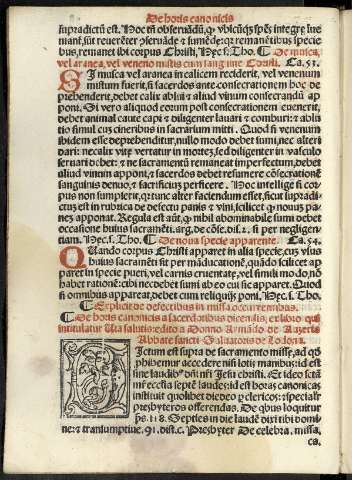 De horis canonicis
supradictum est. Hoc tñ obseruãdũ, ꝙ vbicũqʒ spẽs integre inue
niant͛, sũt reuerẽter ꝓseruãde ⁊ sumẽde: qꝛ remanẽtibus specie
bus, remanet ibi corpus Chꝛisti. Hec s. Tho. ¶ De musca,
vel aranea, vel veneno mistis cum sanguine Christi. Ca. 53.
SI musca vel aranea in calicem reciderit, vel venenum
mistum fuerit, si sacerdos ante consecrationem hoc de
prehenderit, debet calix ablui ⁊ aliud vinum consecrandũ ap
poni. Si vero aliquod eorum post consecrationem euenerit,
debet animal caute capi ⁊ diligenter lauari ⁊ comburi: ⁊ ablu
tio simul cuʒ cineribus in sacrarium mitti. Quod si venenum
ibidem esse deprehenditur, nullo modo debet sumi, nec alteri
dari: ne calix vite vertatur in moꝛteʒ, sed diligenter in vasculo
seruari debet: ⁊ ne sacramentũ remaneat imperfectum, debet
aliud vinum apponi, ⁊ sacerdos debet resumere cõsecrationẽ
sanguinis denuo, ⁊ sacrificiuʒ perficere. Hoc intellige si coꝛ
pus non sumpserit, qꝛ tunc aliter faciendum esset, sicut supradi
citʒ est in rubꝛica de defectu panis ⁊ vini, scilicet ꝙ nouus pa
nis apponat͛. Regula est aũt, ꝙ nihil abominabile sumi debet
occasione huius sacramẽti. arg. de cõse. dis. 2. si per negligen-
tiam. Hec. s. Tho. ¶ De noua specie apparente. Ca. 54.
QUando corpus Christi apparet in alia specie, cuʒ vsus
huius sacramẽti sit per mãducationẽ, quãdo scilicet ap
paret in specie pueri, vel carnis cruentate, vel simili modo, nõ
habet rationẽ cibi nec debet sumi ab eo cui sic apparet. Quod
si omnibus appareat, debet cum reliquijs poni. Hec s. Tho.
¶ Explicit de defectibus in missa occurrentibus.
¶ De horis canonicis a sacerdotibus dicendis, ex libro qui
intitulatur Uita salutis: edito a Donno
Abbate sancti Saluatoris de
DIctum est supꝛa de sacramento missẽ, ad qõ
ꝓhibemur accedere nisi lotis manibus: id est
sine laudibʒ dñi nr̃i Jesu christi. Et ideo scta
mr̃ ecclia septẽ laudes: id est horas canonicas
instituit quolibet die deo ꝑ clericos: ⁊ specialr̃
presbyteros offerendas. De qbus loquitur
ps. 118. Septies in die laudẽ dixi tibi domi
ne: ⁊ transumptiue. 91. dist. c. Presbyter De celebra. missa.
ca.